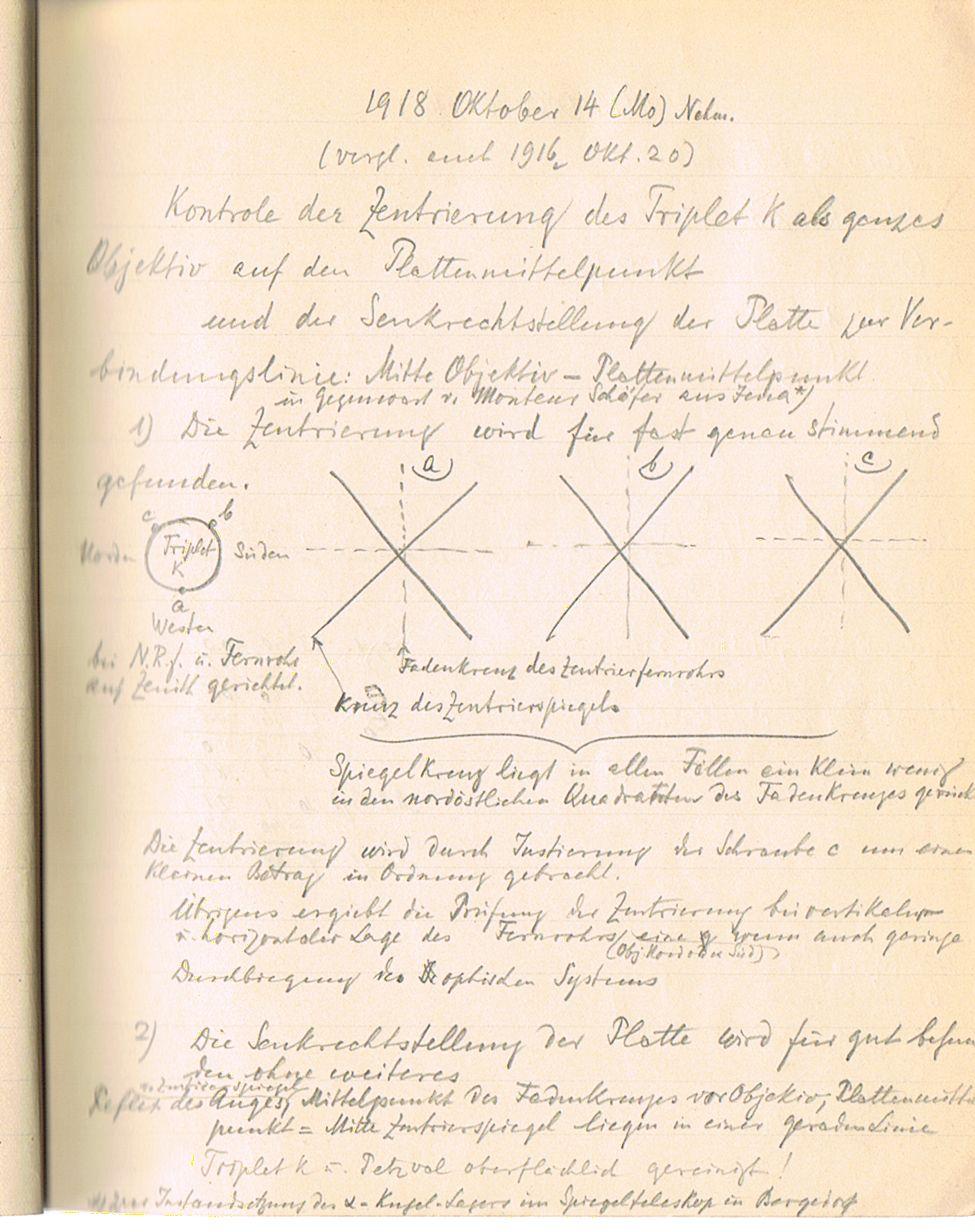 1918 Oktober 14 (Mo) Nchm.
(vergl. auch 1916, Okt. 20)
Kontrole der Zentrierung des Triplet K als ganzes
Objektiv auf den Plattenmittelpunkt
und der Senkrechtstellung der Platte zur Ver-
bindungslinie: Mitte Objektiv – Plattenmittelpunkt
in Gegenwart v. Monteur Schäfer aus Jena*)
1) Die Zentrierung wird für fast genau stimmend
gefunden.
a
b
c
c b
Norden Triplet K Süden
a
Westen
bei N.R.f. u. Fernrohr
auf Zenith gerichtet.
Fadenkreuz des Zentrierfernrohrs
Kreuz des Zentrierspiegels
Spiegelkreuz liegt in allen Fällen ein klein wenig
in den nordöstlichen Quadranten des Fadenkreuzes gerückt
Die Zentrierung wird durch Justierung der Schraube c um einen
kleinen Betrag in Ordnung gebracht.
Übrigens ergiebt die Prüfung der Zentrierung bei vertikaler
u. horizontaler Lage des Fernrohrs eine wenn auch geringe
(Obj Nord oder Süd)
Durchbiegung des optischen Systems
2) Die Senkrechtstellung der Platte wird für gut befun
den ohne weiteres
Reflex des Auges, Mittelpunkt des Fadenkreuzes vor Objektiv, Plattenmittel
punkt = Mitte Zentrierspiegel liegen in einer geraden Linie
Triplet K u. Petzval oberflächlich gereinigt!
Instandsetzung des α-Kugel-Lagers im Spiegelteleskop in Bergedorf